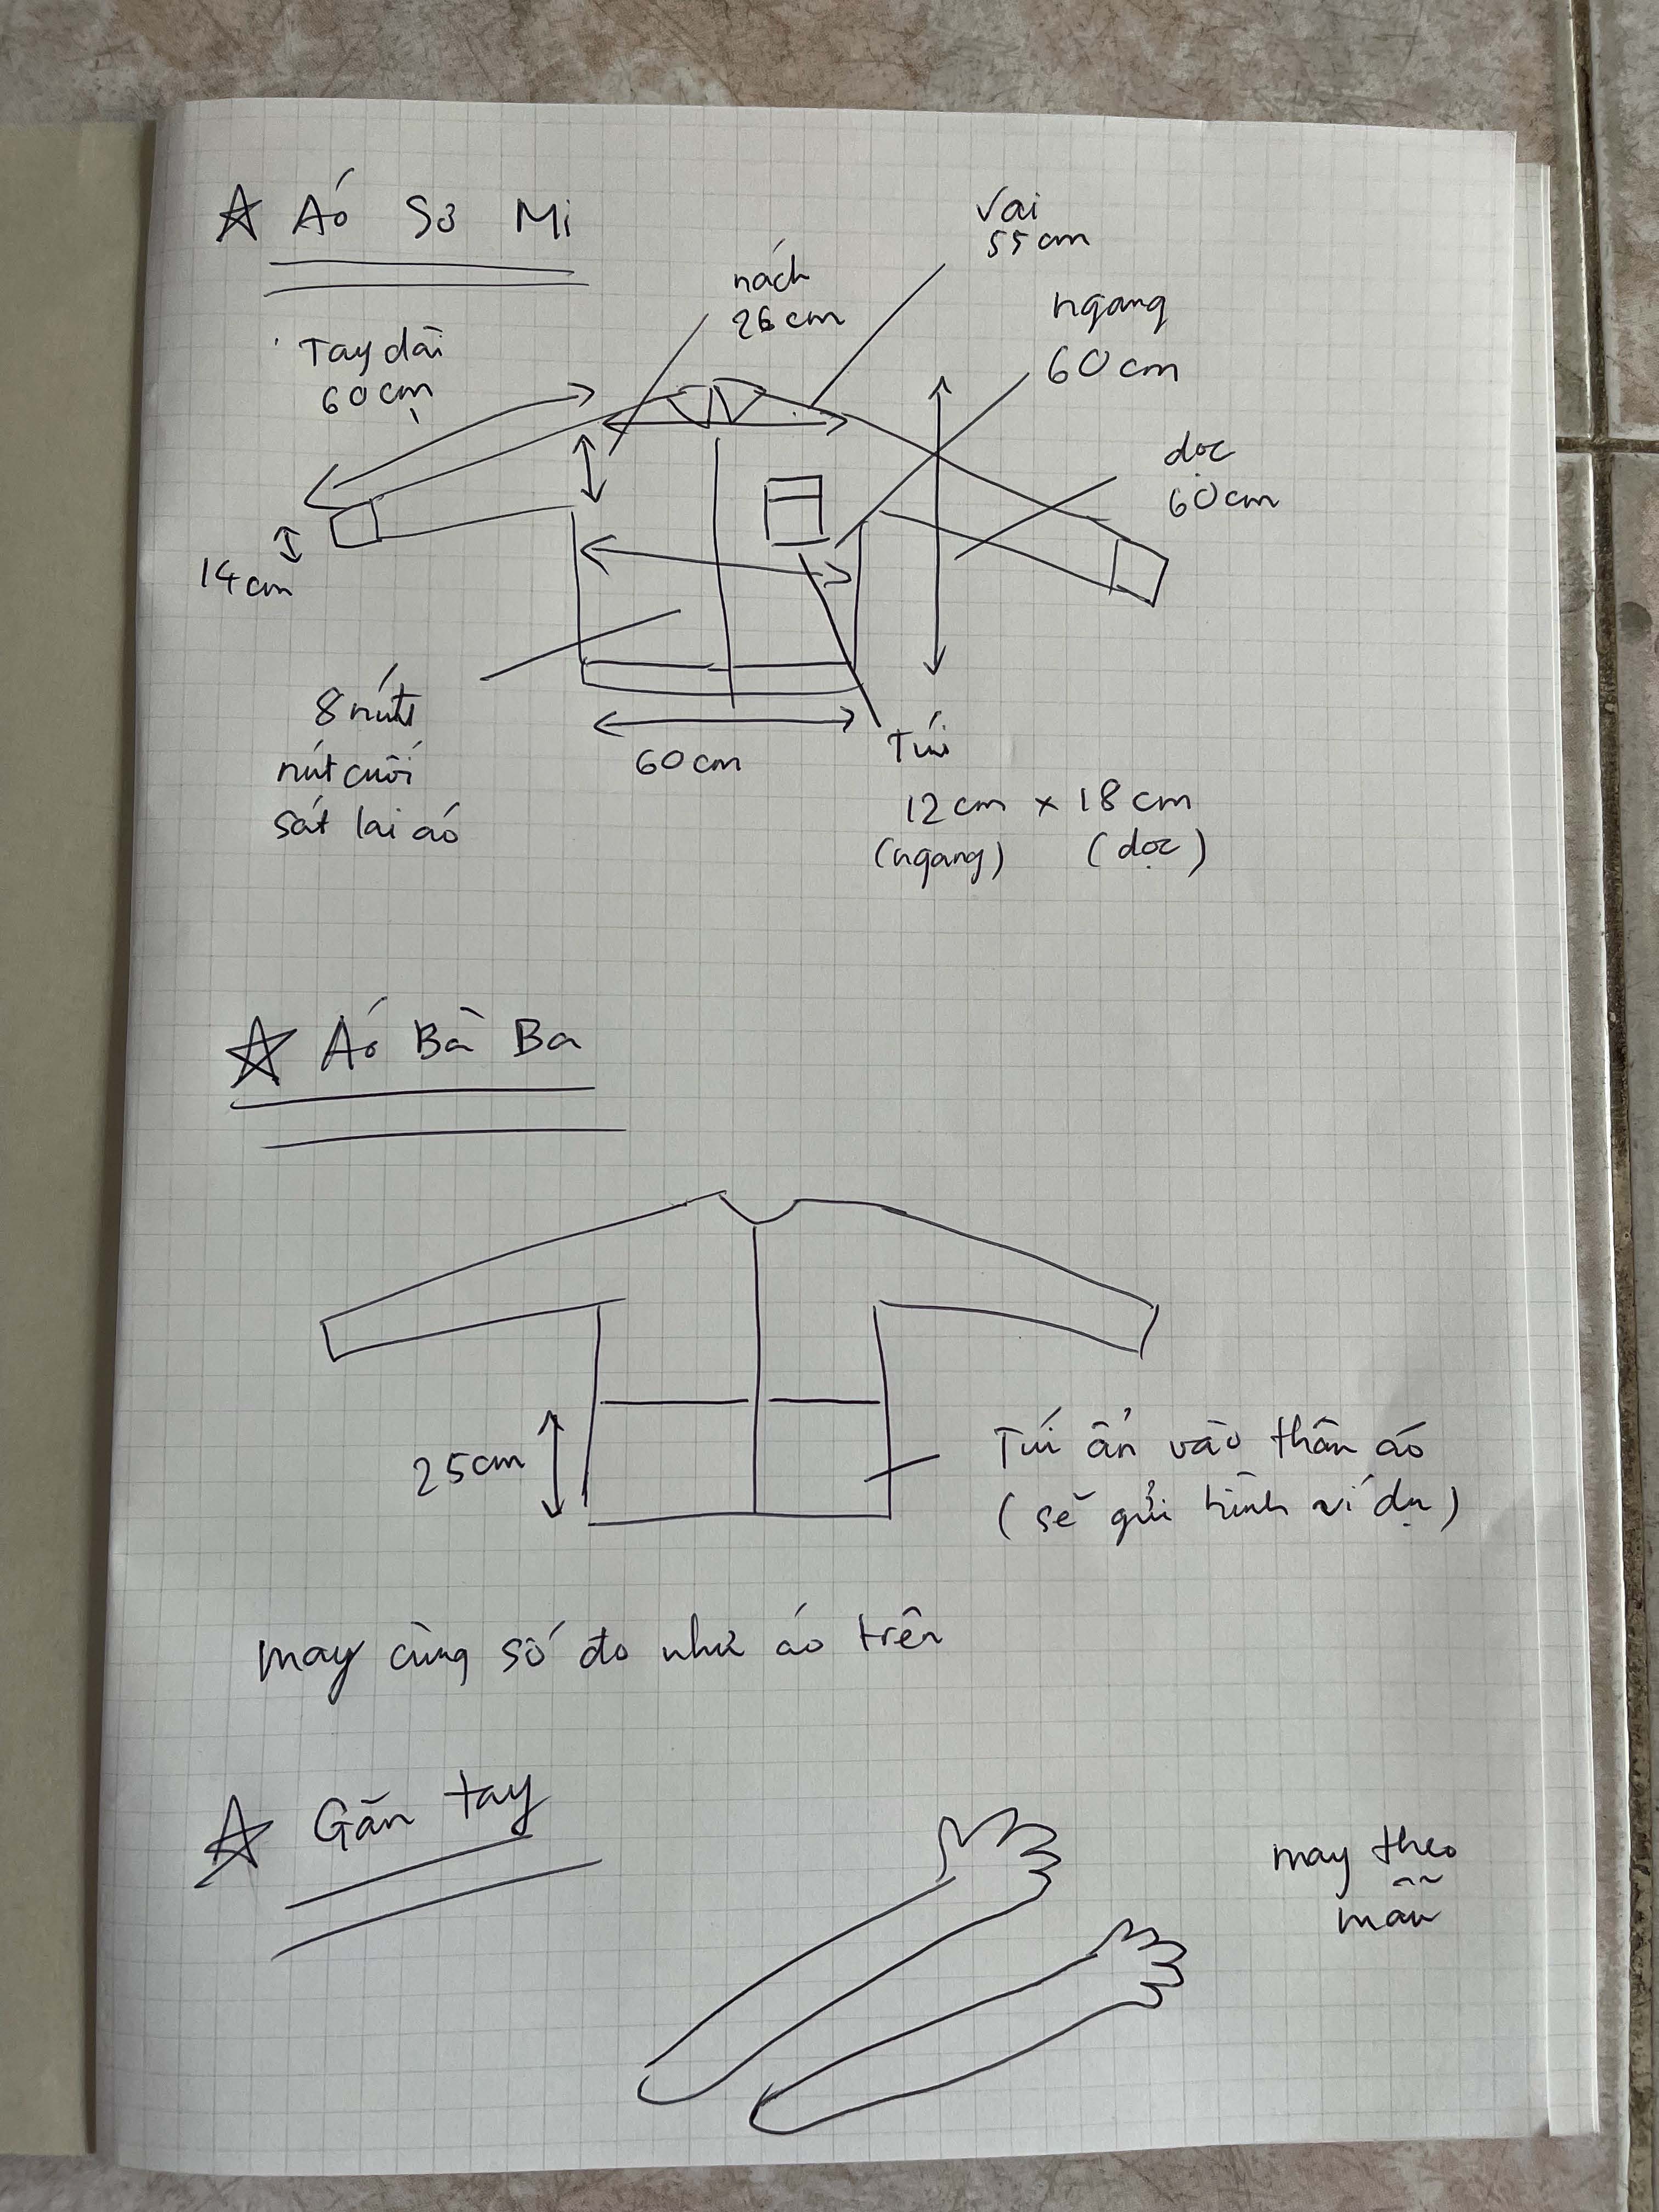 Áo Sơ Mi
vai
55 cm
nách
26 cm
ngang
60 cm
Tay dài
60 cm
dọc
60 cm
14 cm
8 nút
nút cuối
sát lai áo
60 cm
Túi
12 cm x 18 cm
(ngang) (dọc)
Áo Bà Ba
25 cm
Túi ẩn vào thân áo
(sẽ gửi hình ví dụ)
may cùng số đo như áo trên
Găn tay
may theo
mẫu